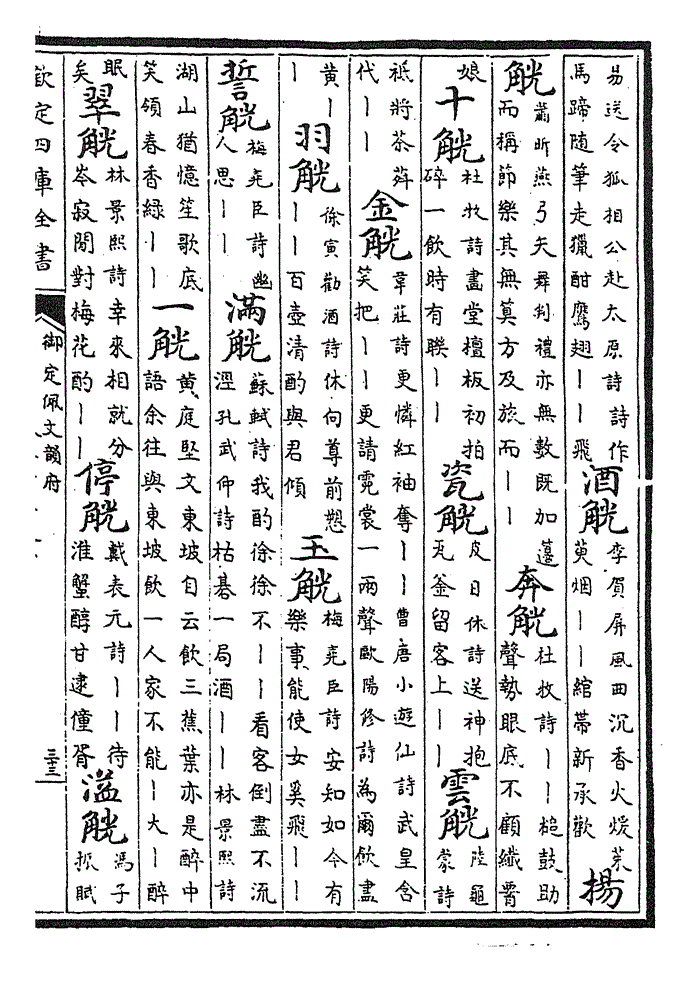 易送令狐相公赴太原詩詩作
馬蹄隨筆走獵酣鷹翅丨丨飛
酒觥
李賀屏風曲沉香火煖茱
萸烟丨丨綰帶新承歡
揚
觥
蕭昕燕弓矢舞判禮亦無數既加籩
而稱節樂其無莫方及旅而丨丨
奔觥
杜牧詩丨丨槌鼓助
聲勢眼底不顧纖腰
娘
十觥
杜牧詩畫堂檀板初拍
碎一飲時有聯丨丨
瓷觥
皮日休詩送神抱
瓦釜留客上丨丨
雲觥
陸龜
蒙詩
祗將茶荈
代丨丨
金觥
韋莊詩更憐紅袖奪丨丨曹唐小遊仙詩武皇含
笑把丨丨更請霓裳一兩聲歐陽修詩為爾飲盡
黄丨
丨
羽觥
徐寅勸酒詩休向尊前愬
丨丨百壺清酌與君傾
玉觥
梅堯臣詩安知如今有
樂事能使女奚飛丨丨
誓觥
梅堯臣詩幽
人思丨丨
滿觥
蘇軾詩我酌徐徐不丨丨看客倒盡不流
涇孔武仲詩枯碁一局酒丨丨林景熙詩
湖山猶憶笙歌底
笑領春香緑丨丨
一觥
黄庭堅文東坡自云飲三蕉葉亦是醉中
語余往與東坡飲一人家不能丨大丨醉
眠
矣
翠觥
林景熙詩幸來相就分
岑寂閒對梅花酌丨丨
停觥
戴表元詩丨丨待
淮蟹醇甘逮僮胥
溢觥
馮子
振賦
欽定四庫全書
御定佩文韻府